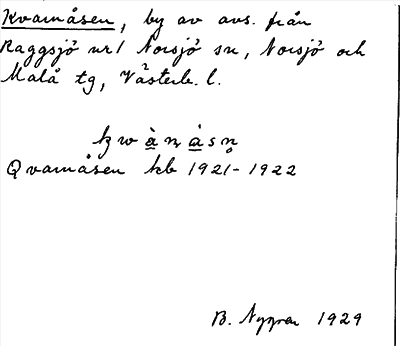 Kvarnåsen, by av avs. från
Raggsjö nr 1 Norsjö sn, Norsjö och
Malå tg, Västerb. l.
Qvarnåsen kb 1921-1922
B. Nygren 1929